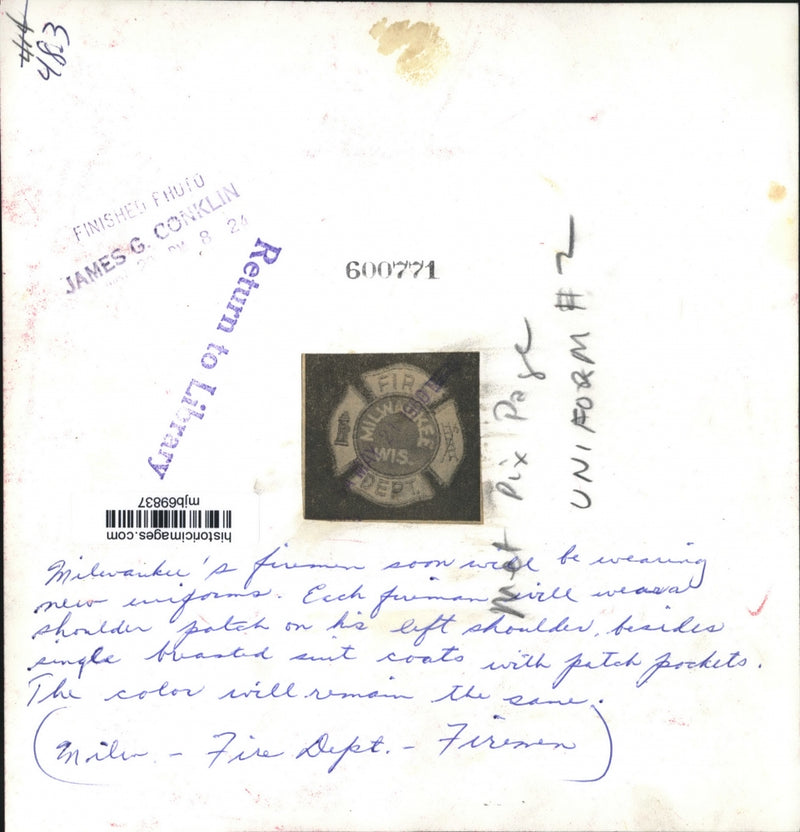 414
483
FINISHED PHOTO
JAMES G. CONKLIN
8 24
Return to Library
600771
FIRE
MILWAUKEE
WIS.
DEPT.
Met Pix Page
UNIFORM #2
historicimages.com
mjb69837
Milwaukee's firemen soon will be wearing
new uniforms. Each fireman will wear a
shoulder patch on his left shoulder, besides
single breasted suit coats with patch pockets.
The color will remain the same.
(Milw. - Fire Dept. - Firemen)